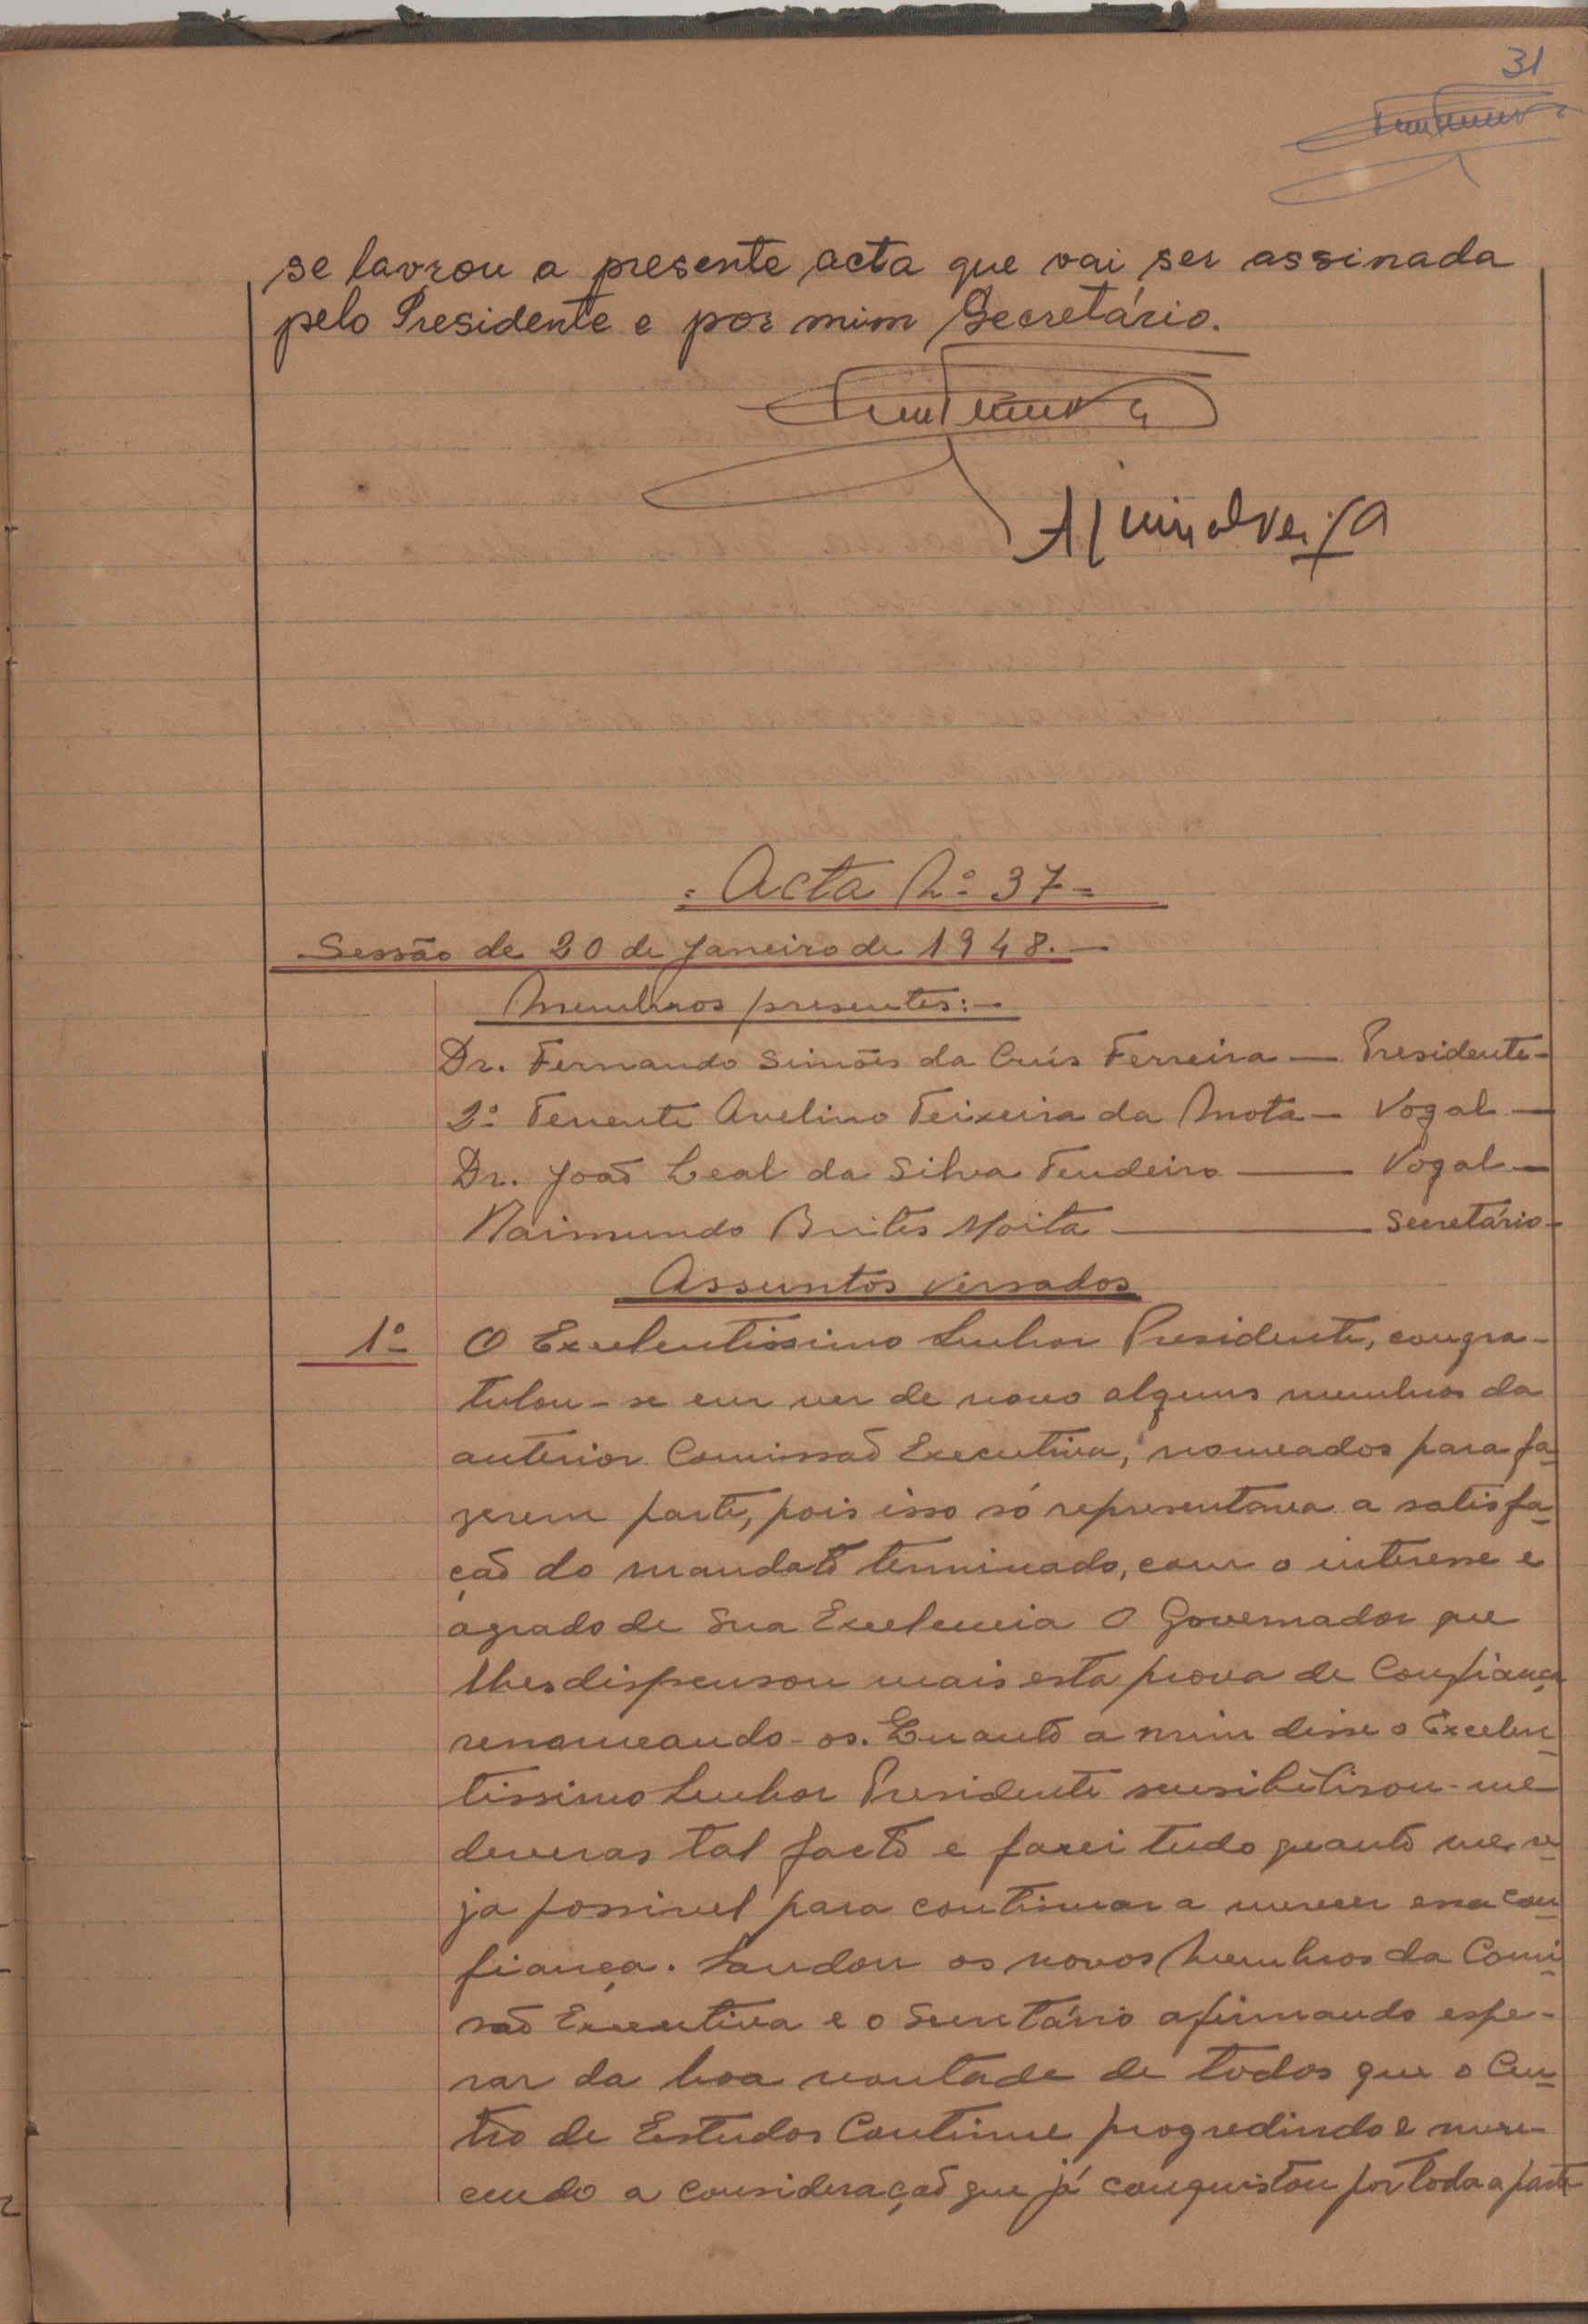 31
se lavrou a presente acta que vai ser assinada
pelo Presidente e por mim Secretário.
= Acta N.º 37 =
Sessão de 20 de Janeiro de 1948. —
Membros presentes: —
Dr. Fernando Simões da Cruz Ferreira — Presidente -
2.º Tenente Avelino Teixeira da Mota — Vogal —
Dr. João Leal da Silva Tendeiro — Vogal —
Raimundo Brites Moita — Secretário -
Assuntos versados
1º O Excelentissimo Senhor Presidente, congra-
tulou-se em ver de novo alguns membros da
anterior Comissão Executiva, nomeados para fa-
zerem parte, pois isso só representava a satisfa-
ção do mandato terminado, com o interesse e
agrado de Sua Excelencia O Governador que
lhes dispensou mais esta prova de Confiança
renomeando-os. Enquanto a mim disse o Excelen-
tissimo Senhor Presidente sensibilisou-me
deveras tal facto e farei tudo quanto me se-
ja possivel para continuar a merecer essa con-
fiança. Saudou os novos Membros da Comi-
são Executiva e o Secretário afirmando espe-
rar da boa vontade de todos que o Cen-
tro de Estudos Continue progredindo e mere-
cendo a consideração que já conquistou por toda a parte